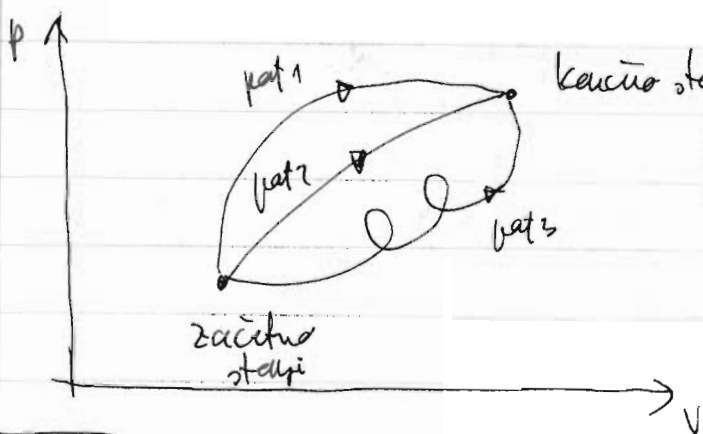 p
pot 1
končno
pot 2
pot 3
začetno
stanje
V